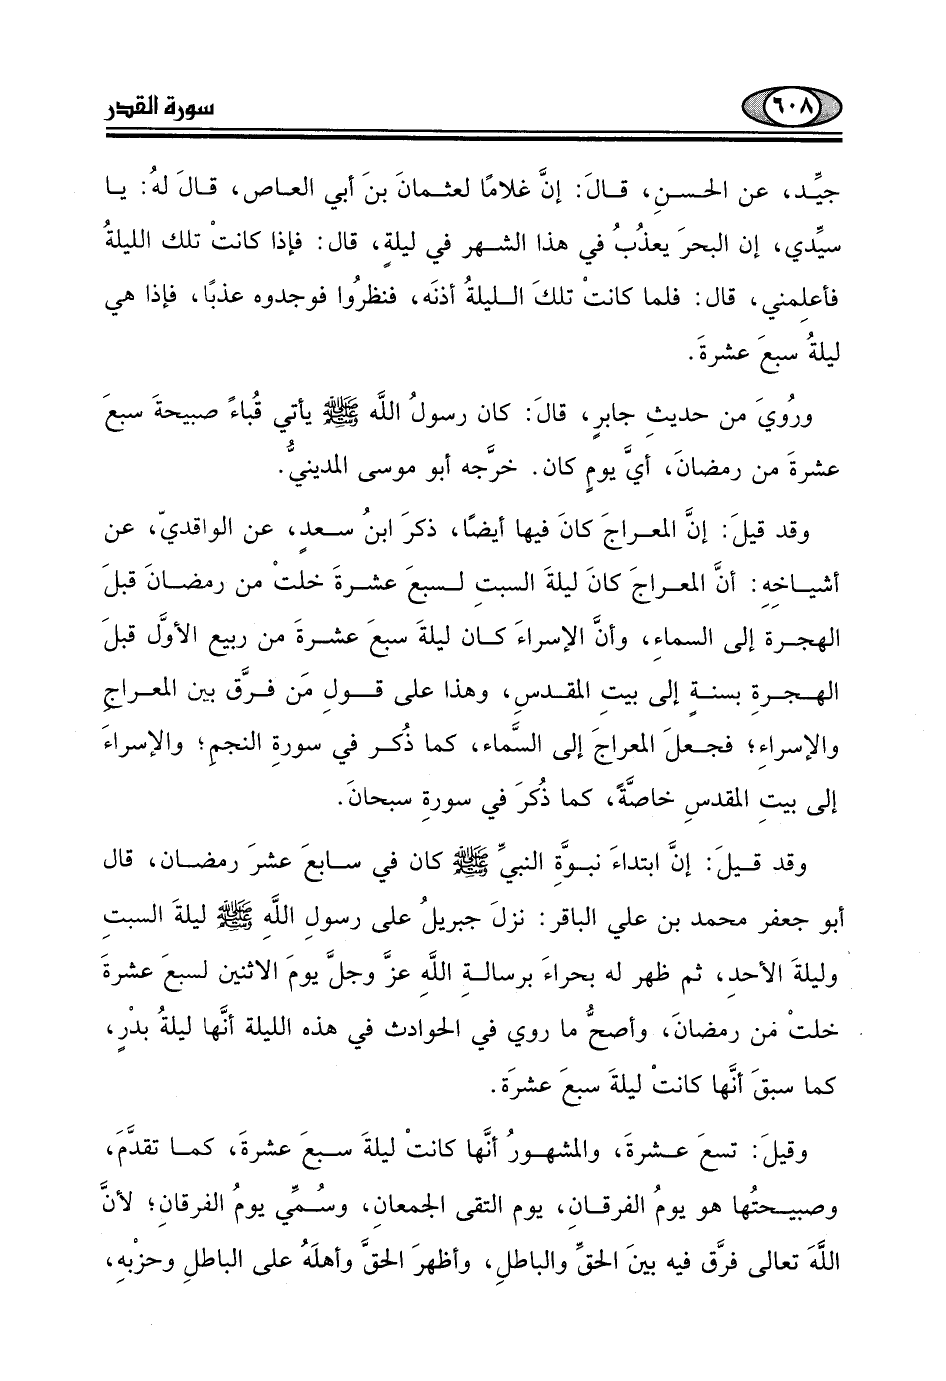 ٦٠٨ سورة القدر
جيِّد، عن الحسنِ، قالَ: إنَّ غلامًا لعثمانَ بنَ أبي العاص، قالَ لهُ: يا
سيِّدي، إن البحرَ يعذُبُ في هذا الشهر في ليلةٍ، قال: فإذا كانتْ تلك الليلةُ
فأعلِمني، قال: فلما كانتْ تلكَ الليلةُ أذنَه، فنظرُوا فوجدوه عذبًا، فإذا هي
ليلةُ سبعَ عشرةَ.
ورُويَ من حديثِ جابرٍ، قالَ: كان رسولُ اللَّه ﷺ يأتي قُباءً صبيحةَ سبعَ
عشرةَ من رمضانَ، أيَّ يومٍ كان. خرَّجه أبو موسى المدينيُّ.
وقد قيلَ: إنَّ المعراجَ كانَ فيها أيضًا، ذكرَ ابنُ سعدٍ، عن الواقديّ، عن
أشياخِهِ: أنَّ المعراجَ كانَ ليلةَ السبتِ لسبعَ عشرةَ خلتْ من رمضانَ قبلَ
الهجرة إلى السماءِ، وأنَّ الإسراءَ كان ليلةَ سبعَ عشرةَ من ربيع الأوَّل قبلَ
الهجرةِ بسنةٍ إلى بيتِ المقدسِ، وهذا على قولِ مَن فرَّق بين المعراجِ
والإسراءِ؛ فجعلَ المعراجَ إلى السَّماء، كما ذُكر في سورةِ النجمِ؛ والإسراءَ
إلى بيتِ المقدسِ خاصَّةً، كما ذُكرَ في سورةِ سبحانَ.
وقد قيلَ: إنَّ ابتداءَ نبوَّةِ النبيِّ ﷺ كان في سابعَ عشرَ رمضان، قال
أبو جعفر محمد بن علي الباقر: نزلَ جبريلُ على رسولِ اللَّهِ ﷺ ليلةَ السبتِ
وليلةَ الأحدِ، ثم ظهر له بحراءَ برسالةِ اللَّهِ عزَّ وجلَّ يومَ الاثنين لسبعَ عشرةَ
خلتْ مَن رمضانَ، وأصحُّ ما روي في الحوادث في هذه الليلة أنَّها ليلةُ بدْرٍ،
كما سبقَ أنَّها كانتْ ليلةَ سبعَ عشرَة.
وقيلَ: تسعَ عشرةَ، والمشهورُ أنَّها كانتْ ليلةَ سبعَ عشرةَ، كما تقدَّمَ،
وصبيحتُها هو يومُ الفرقانِ، يوم التقى الجمعانِ، وسُمِّي يومُ الفرقانِ؛ لأنَّ
اللَّهَ تعالى فرَّق فيه بينَ الحقِّ والباطلِ، وأظهرَ الحقَّ وأهلَهُ على الباطلِ وحزْبِهِ،